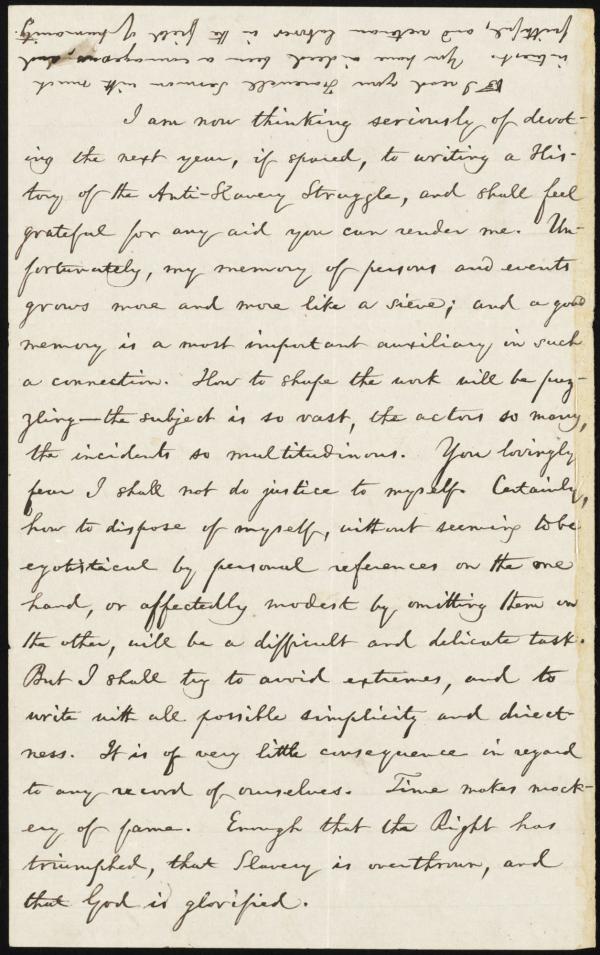 I read your Farewell Sermon with much
interest. You have indeed been a courageous, and
faithful, and veteran laborer in the field of humanity.
I am now thinking seriously of devot-
ing the next year, if spared, to writing a His-
tory of the Anti-Slavery Struggle, and shall feel
grateful for any aid you can render me. Un-
fortunately, my memory of persons and events
grows more and more like a sieve; and a good
memory is a most important auxiliary in such
a connection. How to shape the work will be puz-
zling—the subject is so vast, the actors so many,
the incidents so multitudinous. You lovingly
fear I shall not do justice to myself. Certainly,
how to dispose of myself, without seeming to be
egotistical by personal references on the one
hand, or affectedly modest by omitting them on
the other, will be a difficult and delicate task.
But I shall try to avoid extremes, and to
write with all possible simplicity and direct-
ness. It is of very little consequence in regard
to any record of ourselves. Time makes mock-
ery of fame. Enough that the Right has
triumphed, that Slavery is overthrown, and
that God is glorified.